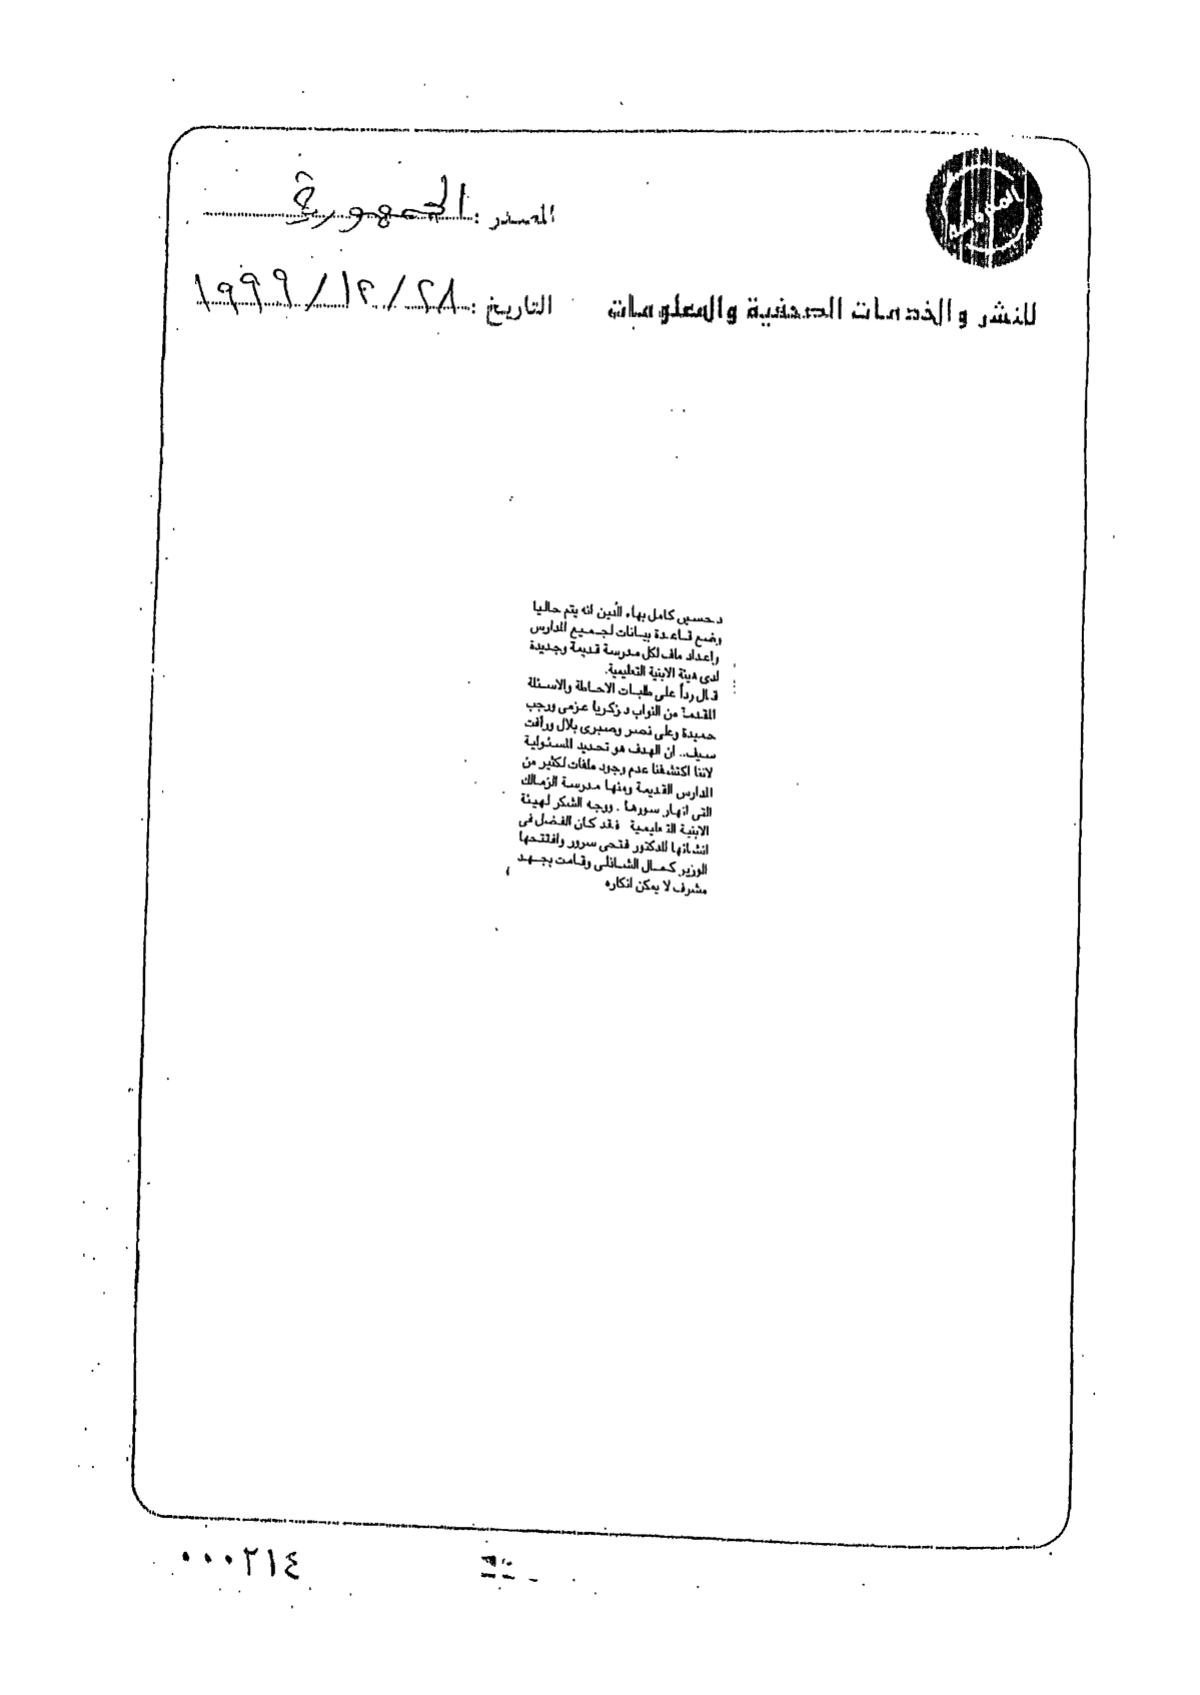 المحروسة
المصدر : الجمهورية
للنشر والخدمات الصحفية والمعلومات
التاريخ : ٢٨ / ١٢ / ١٩٩٩
د. حسين كامل بهاء الدين انه يتم حاليا
وضع قاعدة بيانات لجميع المدارس
واعداد ملف لكل مدرسة قديمة وجديدة
لدى هيئة الابنية التعليمية.
قال رداً على طلبات الاحاطة والاسئلة
المقدمة من النواب د. زكريا عزمى ورجب
حميدة وعلى نصر وصبرى بلال ورأفت
سيف.. ان الهدف هو تحديد المسئولية
لاننا اكتشفنا عدم وجود ملفات لكثير من
المدارس القديمة ومنها مدرسة الزمالك
التى انهار سورها . ووجه الشكر لهيئة
الابنية التعليمية فقد كان الفضل فى
انشائها للدكتور فتحى سرور وافتتحها
الوزير كمال الشاذلى وقامت بجهد
مشرف لا يمكن انكاره
٠٠٠٢١٤